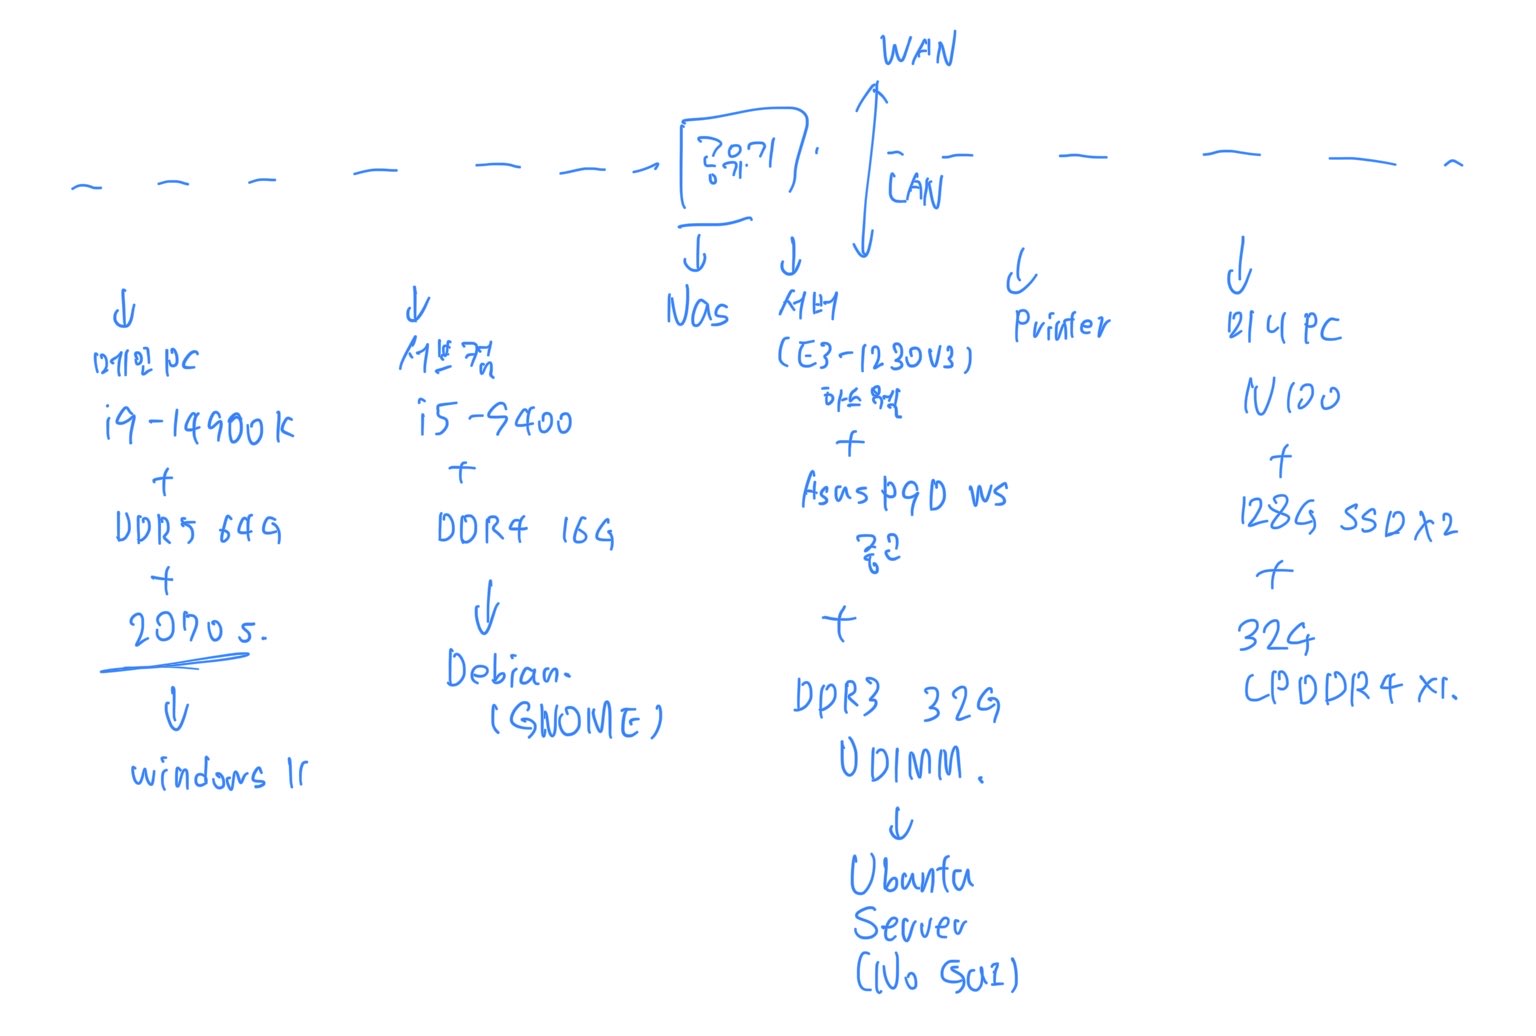 WAN
공유기
LAN
메인 PC
i9-14900K
+
DDR5 64G
+
2070 s.
windows 11
서브컴
i5-9400
+
DDR4 16G
Debian.
(GNOME)
Nas
서버
(E3-1230V3)
+
Asus P9D WS
+
DDR3 32G
UDIMM.
Ubuntu
Server
(No GUI)
Printer
미니 PC
N100
+
128G SSD X2
+
32G
LPDDR4 X1.